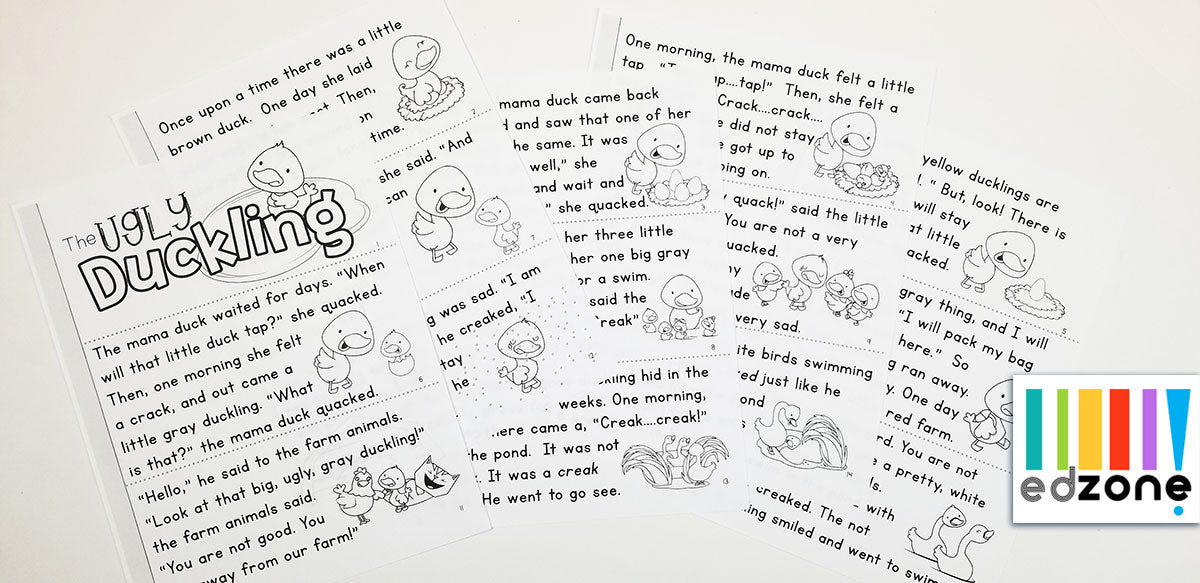 Once upon a time there was a little
brown duck. One day she laid
Then,
on
time.
2
The UGLY
Duckling
The mama duck waited for days. “When
will that little duck tap?” she quacked.
Then, one morning she felt
a crack, and out came a
little gray duckling. “What
is that?” the mama duck quacked.
6
“Hello,” he said to the farm animals.
“Look at that big, ugly, gray duckling!”
the farm animals said.
“You are not good. You
away from our farm!”
11
she said. “And
can
7
was sad. “I am
he creaked, “I
tay
he
12
mama duck came back
d and saw that one of her
he same. It was
well,” she
and wait and
she quacked.
3
her three little
her one big gray
or a swim.
said the
8
hid in the
weeks. One morning,
here came a, “Creak....creak!”
the pond. It was not
. It was a creak
He went to go see.
13
One morning, the mama duck felt a little
tap.
ap....tap!” Then, she felt a
Crack....crack....
e did not stay
e got up to
ing on.
4
y quack!” said the little
You are not a very
uacked.
ny
ude
very sad.
9
ite birds swimming
red just like he
ond
14
yellow ducklings are
“ But, look! There is
will stay
at little
acked.
5
gray thing, and I will
“I will pack my bag
here.” So
g ran away.
y. One day
red farm.
rd. You are not
e a pretty, white
ls.
with
creaked. The not
ing smiled and went to swim
edzone